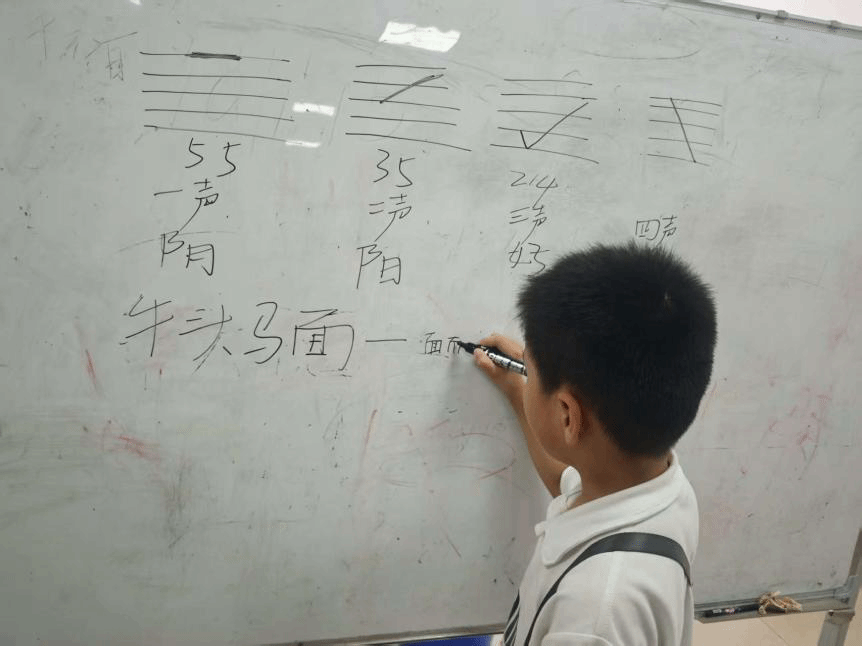 55 35 214
一声 二声 三声 四声
阴 阳 好
牛头马面 — 面